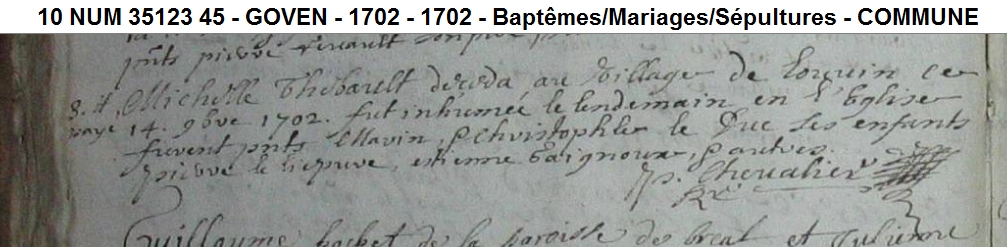 10 NUM 35123 45 - GOVEN - 1702 - 1702 - Baptêmes/Mariages/Sépultures - COMMUNE
pnts pierre
Michelle Thebault deceda au Village de Louvin ce
paye 14. 9bre 1702. fut inhumée le lendemain en l'Eglise
furent pnts Mavin, & Christophle le Duc ses enfants
pierre le liepure, estienne Gaignoux, & autres.
p. Chevalier
Rr
Guillaume hochet de la paroisse de breal et Julienne